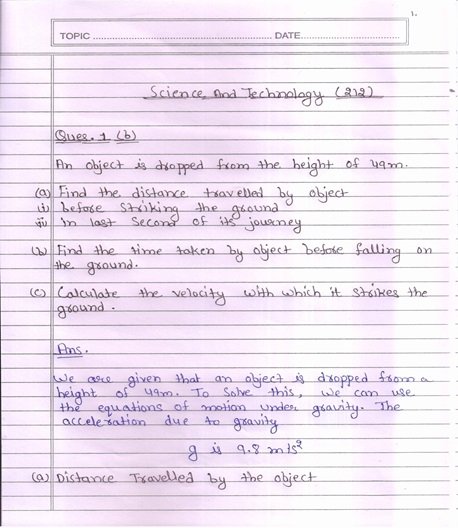 1.
TOPIC ........................................ DATE........................
Science And Technology (212)
Ques. 1 (b)
An object is dropped from the height of 49m.
(a) Find the distance travelled by object
i) before striking the ground
ii) in last second of its journey
(b) Find the time taken by object before falling on
the ground.
(c) Calculate the velocity with which it strikes the
ground.
Ans.
We are given that an object is dropped from a
height of 49m. To solve this, we can use
the equations of motion under gravity. The
acceleration due to gravity
g is 9.8 m/s²
(a) Distance Travelled by the object